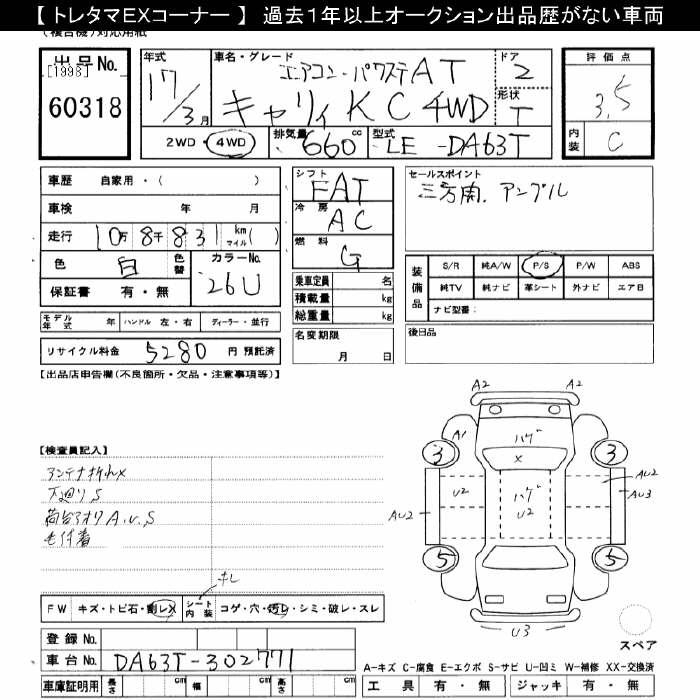 【 トレタマEXコーナー 】 過去1年以上オークション出品歴がない車両
(複合機)対応用紙
出品No.
[1998]
60318
年式
17/3月
車名・グレード
エアコン・パワステAT
キャリィ KC 4WD
ドア
2
形状
T
評価点
3.5
内装
C
2WD・4WD
排気量
660cc
型式
LE-DA63T
車歴 自家用・( )
車検 年 月
走行 10万8千831km マイル( )
色 白 色替
カラーNo.
26U
保証書 有・無
シフト
FAT
冷房
AC
燃料
G
乗車定員 名
積載量 kg
総重量 kg
セールスポイント
三方開. アングル
装備品
S/R 純A/W P/S P/W ABS
純TV 純ナビ 革シート 外ナビ エアB
ナビ型番:
モデル年式 年 ハンドル 左・右 ディーラー・並行
リサイクル料金 5280 円 預託済
名変期限
月 日
後日品
【出品店申告欄(不良箇所・欠品・注意事項等)】
【検査員記入】
アンテナ折れX
下廻りS
荷台アオリA.U.S
キレ
A2 A2
A1
ハゲ
X
3 3
U2
ハゲ
U2
AU2
AU2
AU3
5 5
U3
スペア
FW キズ・トビ石・割レX
シート内装 コゲ・穴・汚レ・シミ・破レ・スレ
登録No.
車台No. DA63T-302771
車庫証明用 長さ cm 幅 cm 高さ cm
A-キズ C-腐食 E-エクボ S-サビ U-凹ミ W-補修 XX-交換済
工具 有・無 ジャッキ 有・無